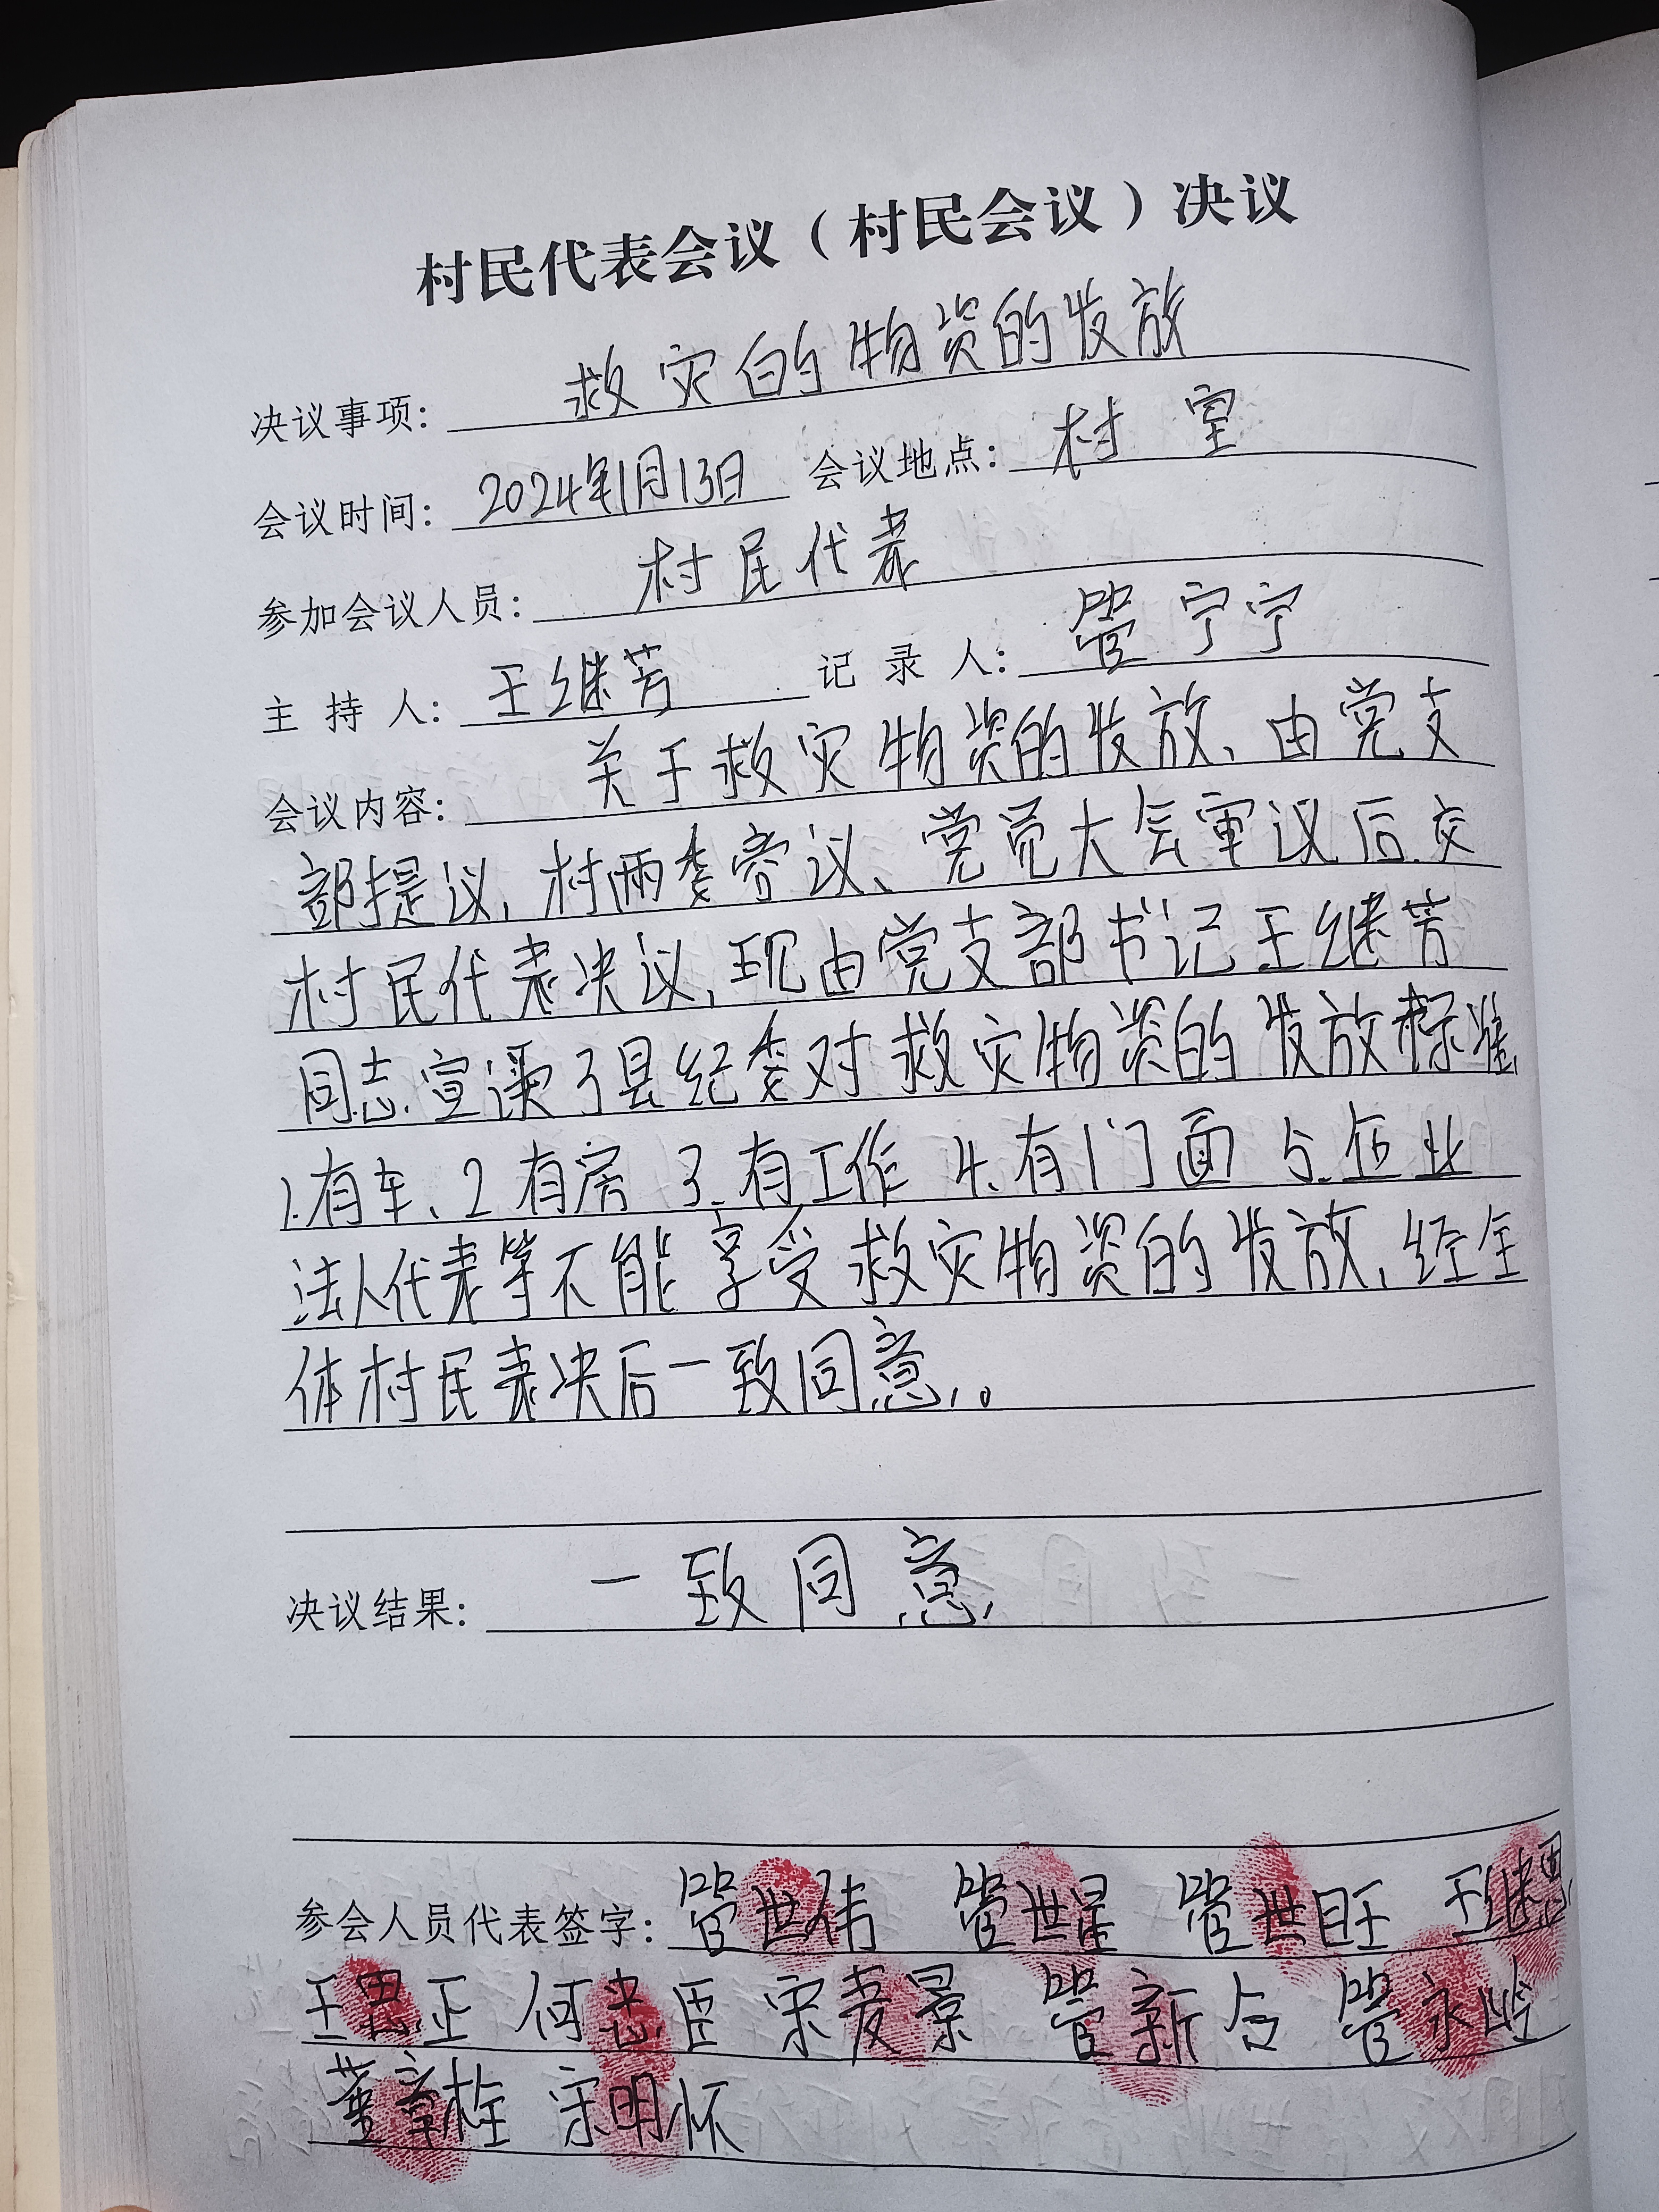 村民代表会议（村民会议）决议
决议事项：救灾的物资的发放
会议时间：2024年1月13日 会议地点：村室
参加会议人员：村民代表
主持人：王继芳 记录人：管宁宁
会议内容：关于救灾物资的发放、由党支
部提议，村两委商议、党员大会审议后.交
村民代表决议，现由党支部书记王继芳
同志.宣读了县纪委对救灾物资的发放标准，
1.有车、2有房 3.有工作 4.有门面 5.企业
法人代表等不能享受救灾物资的发放，经全
体村民表决后一致同意，。
决议结果：一致同意，
参会人员代表签字：管世伟 管世星 管世旺 王继恩
王思正 何忠臣 宋麦景 管新合 管永
董章栓 宋明怀